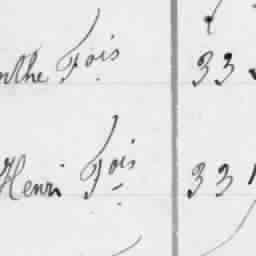 Fois 33
Henri Fois 33